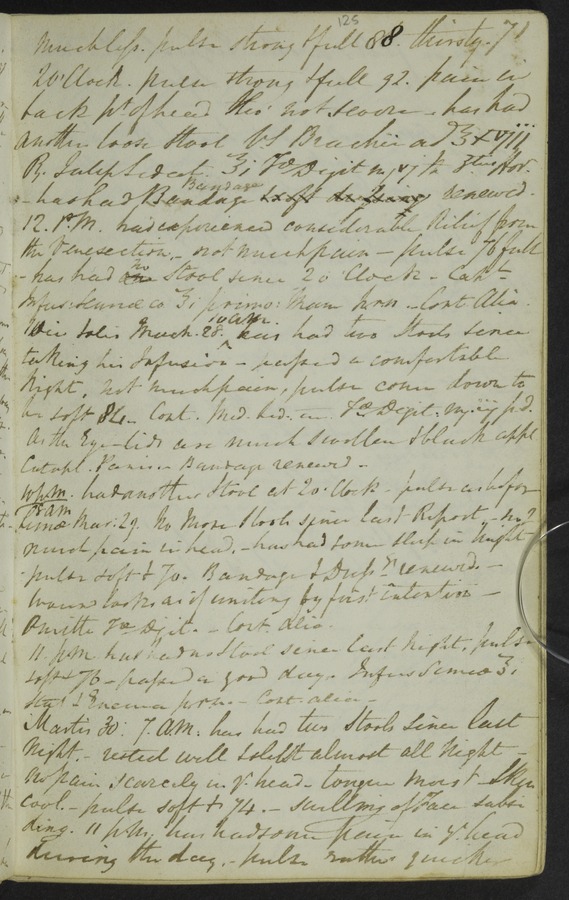 125
much less. pulse strong & full 88. thirsty. 71
2 o'Clock. pulse strong & full 92. pain in
back pt. of head tho' not severe - has had
another loose Stool VS Brachii ad ℥xviij
R. Julep Sedat. ʒi Tra Digit m vj ter
- has had Bandage renewed.
Bandage
12. P.M. had experienced considerable Relief from
the Venesection, - not much pain - pulse 78 full
- has had no Stool since 2 o'Clock - Capt
Infus: Sennæ co ℥i primo: Mane - Cont Alia.
Die Solis March. 28. 10 am. has had two Stools since
taking his Infusion - passed a comfortable
Night, not much pain, pulse come down to
be soft 84. Cont. Med. Tra Digit.
As the Eye-lids are much swollen & black appl
Catapl. Panis - Bandage renewed -
10 p.m. had another Stool at 2 o'Clock - pulse as before
7 am
Lunæ Mar: 29. No More Stools since last Report - no
much pain in head, - has had some sleep in Night
- pulse soft & 70. Bandage & Dressgs renewed -
wound looks as if uniting by first intention -
Omitte Tra Digit. - Cont. Alia.
11. p.m. has had no Stool since last Night, pulse
soft & 76 - passed a good day. Infus Sennæ ℥i
Enema - Cont: alia -
Martis 30. 7. AM. has had two Stools since last
Night. - rested well & slept almost all Night -
no pain scarcely in ye head - tongue moist - Skin
cool. - pulse soft & 74. - swelling of Face subsi
ding. 11 p.m. has had some pain in ye head
during the day. - pulse rather quicker